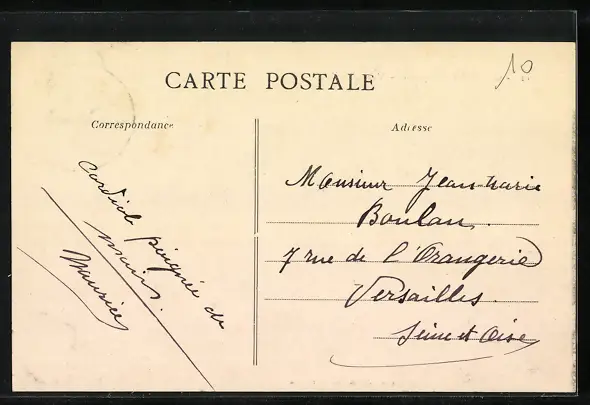 10
CARTE POSTALE
Correspondance
Adresse
cordiale poignée de
main.
Maurice
Monsieur Jean Marie
Boulan
7 rue de l'Orangerie
Versailles
Seine et Oise